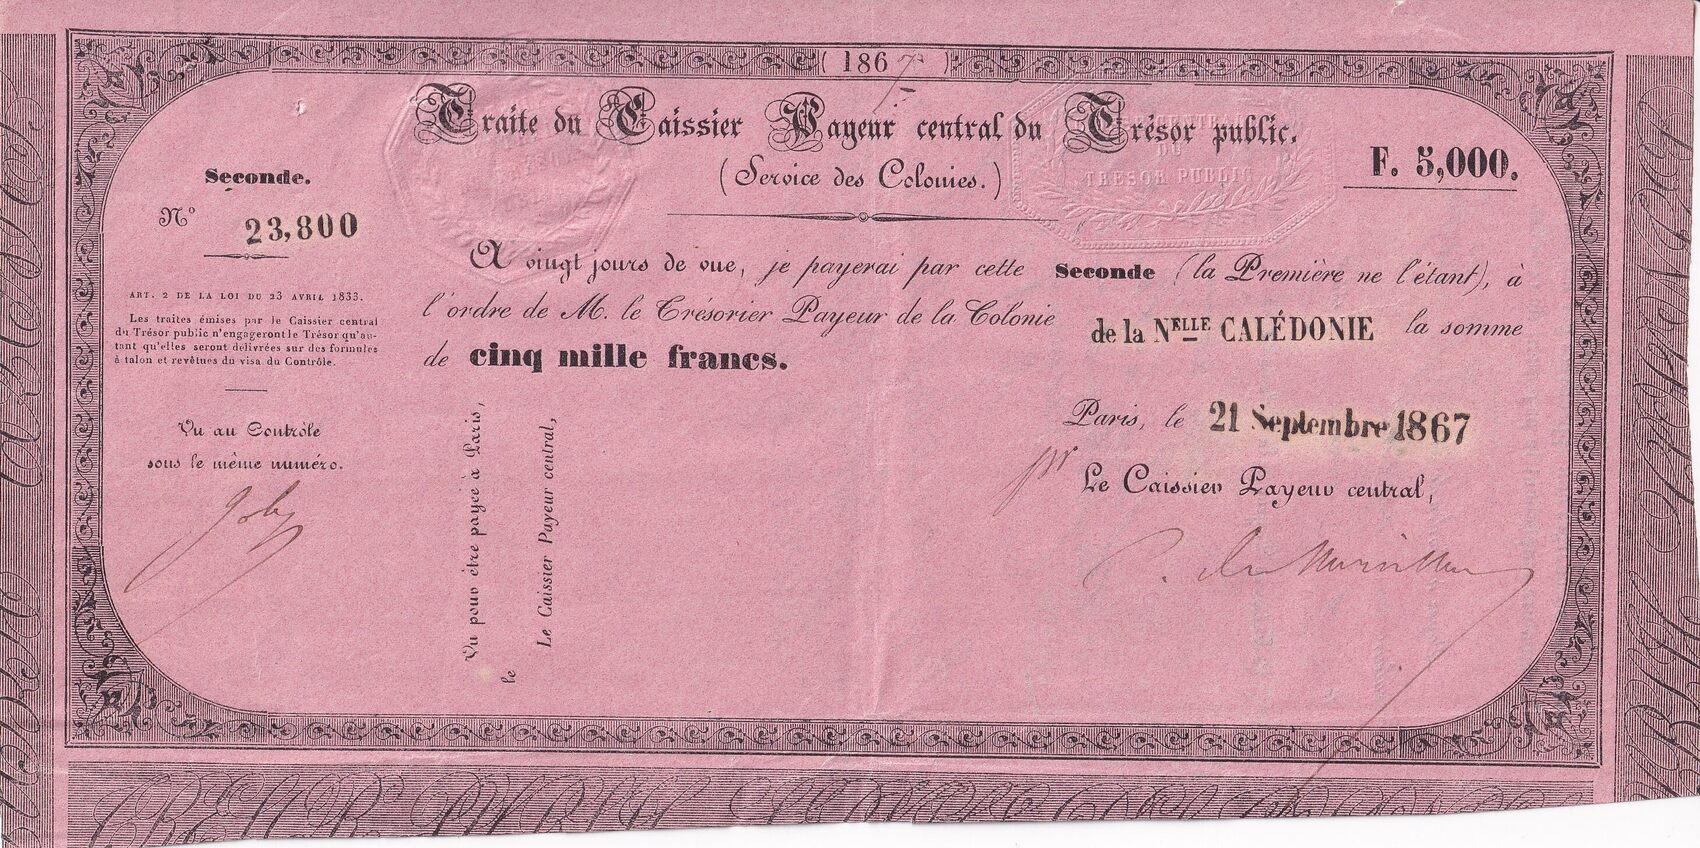 (1867)
Traite du Caissier Payeur central du Trésor public.
(Service des Colonies.)
F. 5,000.
Seconde.
N° 23,800
ART. 2 DE LA LOI DU 23 AVRIL 1833.
Les traites émises par le Caissier central
du Trésor public n'engageront le Trésor qu'au-
tant qu'elles seront délivrées sur des formules
à talon et revêtues du visa du Contrôle.
Vu au Contrôle
sous le même numéro.
A vingt jours de vue, je payerai par cette Seconde (la Première ne l'étant), à
l'ordre de M. le Trésorier Payeur de la Colonie de la NELLE CALÉDONIE la somme
de cinq mille francs.
Paris, le 21 Septembre 1867
pr Le Caissier Payeur central,
Vu pour être payée à Paris,
le
Le Caissier Payeur central,
DU
TRESOR PUBLIC